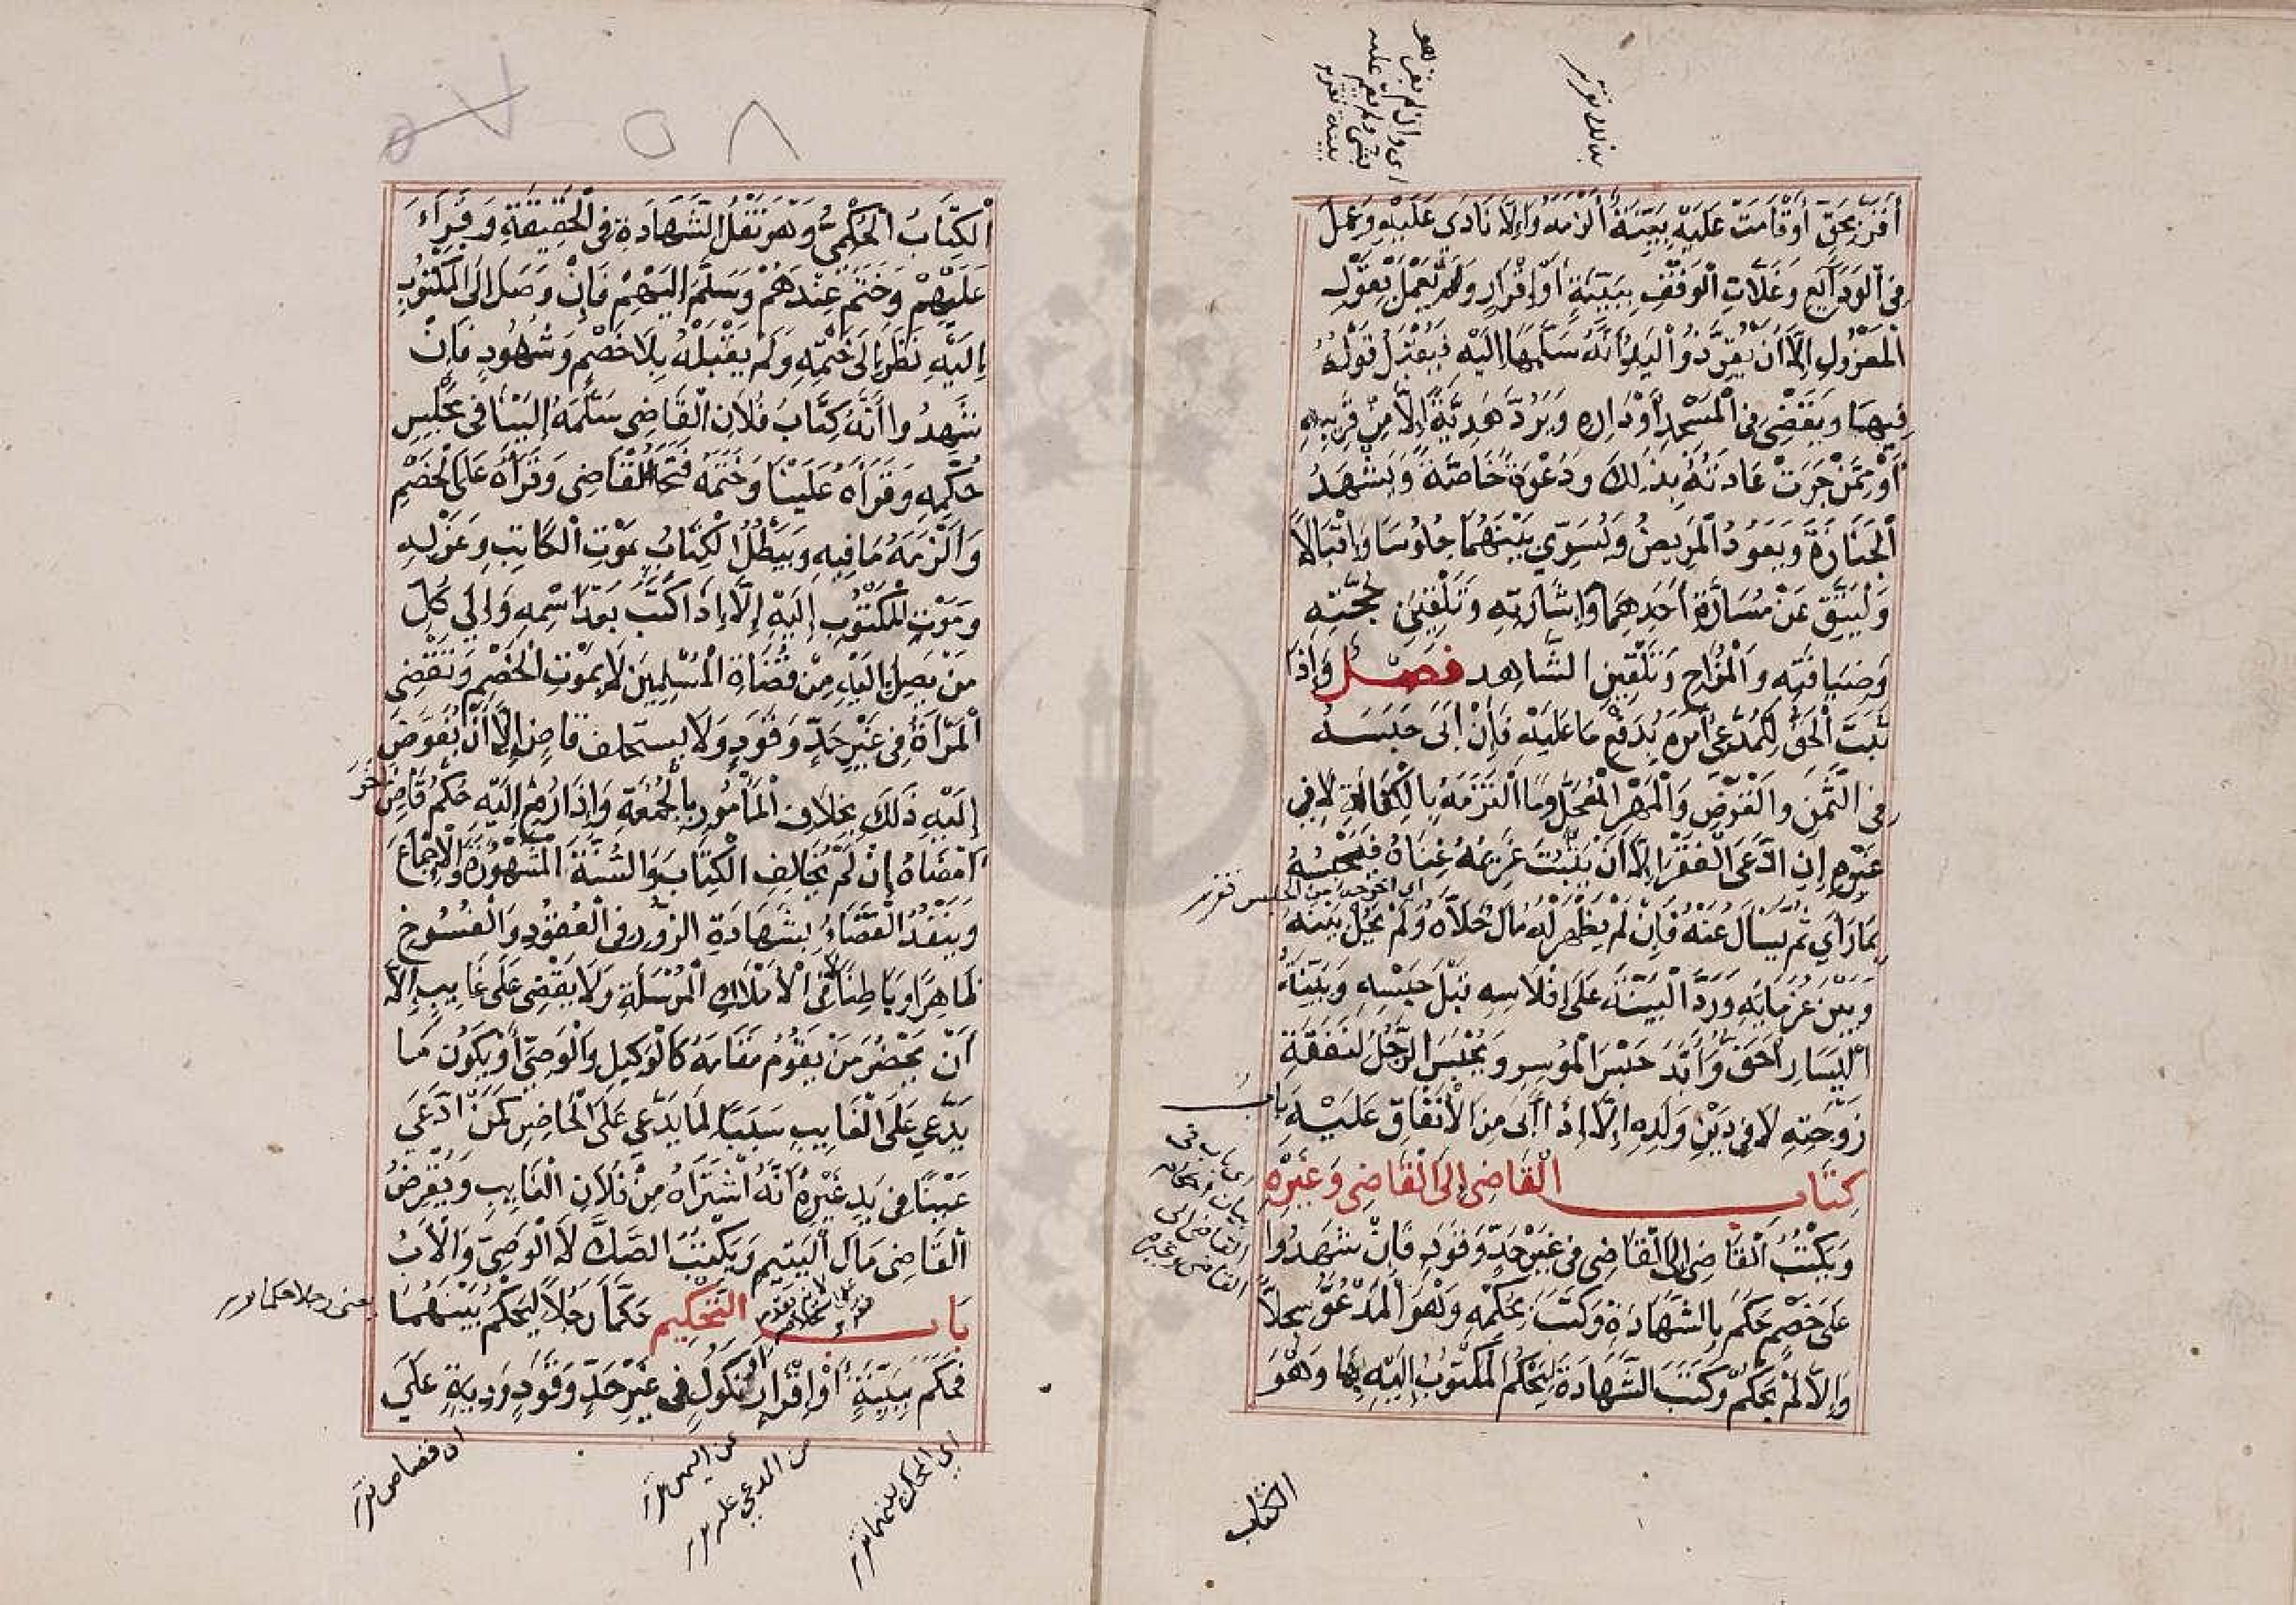 أَقَرَّ بِحَقٍّ أَوْ قَامَتْ عَلَيْهِ بَيِّنَةٌ أَلْزَمَهُ وَإِلَّا نَادَى عَلَيْهِ وَعَمِلَ
فِي الْوَدَائِعِ وَغَلَّاتِ الْوَقْفِ بِبَيِّنَةٍ أَوْ إِقْرَارٍ وَلَمْ يَعْمَلْ بِقَوْلِ
الْمَعْزُولِ إِلَّا أَنْ يُقِرَّ ذُو الْيَدِ أَنَّهُ سَلَّمَهَا إِلَيْهِ فَيُقْبَلُ قَوْلُهُ
فِيهِمَا وَيَقْضِي فِي الْمَسْجِدِ أَوْ دَارِهِ وَيَرُدُّ هَدِيَّةً إِلَّا مِنْ قَرِيبِهِ
أَوْ مِمَّنْ جَرَتْ عَادَتُهُ بِذَلِكَ وَدَعْوَةً خَاصَّةً وَيَشْهَدُ
الْجَنَازَةَ وَيَعُودُ الْمَرِيضَ وَيُسَوِّي بَيْنَهُمَا جُلُوسًا وَإِقْبَالًا
وَلْيَتَّقِ عَنْ مُسَارَّةِ أَحَدِهِمَا وَإِشَارَتِهِ وَتَلْقِينِ حُجَّتِهِ
وَضِيَافَتِهِ وَالْمُزَاحِ وَتَلْقِينِ الشَّاهِدِ فصل وَإِذَا
ثَبَتَ الْحَقُّ لِلْمُدَّعِي أَمَرَهُ بِدَفْعِ مَا عَلَيْهِ فَإِنْ أَبَى حَبَسَهُ
فِي الثَّمَنِ وَالْقَرْضِ وَالْمَهْرِ الْمُعَجَّلِ وَمَا الْتَزَمَهُ بِالْكَفَالَةِ لَا فِي
غَيْرِهِ إِنِ ادَّعَى الْفَقْرَ إِلَّا أَنْ يُثْبِتَ غَرِيمُهُ غِنَاهُ فَيَحْبِسُهُ
بِمَا رَأَى ثُمَّ يَسْأَلُ عَنْهُ فَإِنْ لَمْ يَظْهَرْ لَهُ مَالٌ خَلَّاهُ وَلَمْ يَحُلْ بَيْنَهُ
وَبَيْنَ غُرَمَائِهِ وَرَدَّ الْبَيِّنَةَ عَلَى إِفْلَاسِهِ قَبْلَ حَبْسِهِ وَبَيِّنَةُ
الْيَسَارِ أَحَقُّ وَأَبَّدَ حَبْسَ الْمُوسِرِ وَيُحْبَسُ الرَّجُلُ لِنَفَقَةِ
زَوْجَتِهِ لَا فِي دَيْنِ وَلَدِهِ إِلَّا إِذَا أَبَى مِنَ الْإِنْفَاقِ عَلَيْهِ باب
كِتَاب الْقَاضِي إِلَى الْقَاضِي وَغَيْرِهِ
وَيَكْتُبُ الْقَاضِي إِلَى الْقَاضِي فِي غَيْرِ حَدٍّ وَقَوَدٍ فَإِنْ شَهِدُوا
عَلَى خَصْمٍ حَكَمَ بِالشَّهَادَةِ وَكَتَبَ بِحُكْمِهِ وَهُوَ الْمَدْعُوُّ سِجِلًّا
وَإِلَّا لَمْ يَحْكُمْ وَكَتَبَ الشَّهَادَةَ لِيَحْكُمَ الْمَكْتُوبُ إِلَيْهِ بِهَا وَهُوَ
اي اخرجه من الحبس
اي باب في
بيان احكام
القاضي الى
القاضي وغيره
الكتاب
٥٨
الْكِتَابُ الْحُكْمِيُّ وَهُوَ نَقْلُ الشَّهَادَةِ فِي الْحَقِيقَةِ وَقَرَأَ
عَلَيْهِمْ وَخَتَمَ عِنْدَهُمْ وَسَلَّمَ إِلَيْهِمْ فَإِنْ وَصَلَ إِلَى الْمَكْتُوبِ
إِلَيْهِ نَظَرَ إِلَى خَتْمِهِ وَلَمْ يَقْبَلْهُ بِلَا خَصْمٍ وَشُهُودٍ فَإِنْ
شَهِدُوا أَنَّهُ كِتَابُ فُلَانِ الْقَاضِي سَلَّمَهُ إِلَيْنَا فِي مَجْلِسِ
حُكْمِهِ وَقَرَأَهُ عَلَيْنَا وَخَتَمَهُ فَتَحَ الْقَاضِي وَقَرَأَهُ عَلَى الْخَصْمِ
وَأَلْزَمَهُ مَا فِيهِ وَيَبْطُلُ الْكِتَابُ بِمَوْتِ الْكَاتِبِ وَعَزْلِهِ
وَمَوْتِ الْمَكْتُوبِ إِلَيْهِ إِلَّا إِذَا كَتَبَ بَعْدَ اسْمِهِ وَإِلَى كُلِّ
مَنْ يَصِلُ إِلَيْهِ مِنْ قُضَاةِ الْمُسْلِمِينَ لَا بِمَوْتِ الْخَصْمِ وَتَقْضِي
الْمَرْأَةُ فِي غَيْرِ حَدٍّ وَقَوَدٍ وَلَا يستخلف قَاضٍ إِلَّا أَنْ يُفَوَّضَ
إِلَيْهِ ذَلِكَ بِخِلَافِ الْمَأْمُورِ بِالْجُمُعَةِ وَإِذَا رُفِعَ إِلَيْهِ حُكْمُ قَاضٍ آخَرَ
أَمْضَاهُ إِنْ لَمْ يُخَالِفِ الْكِتَابَ وَالسُّنَّةَ الْمَشْهُورَةَ وَالْإِجْمَاعَ
وَيَنْفُذُ الْقَضَاءُ بِشَهَادَةِ الزُّورِ فِي الْعُقُودِ وَالْفُسُوخِ
ظَاهِرًا وَبَاطِنًا لَا فِي الْأَمْلَاكِ الْمُرْسَلَةِ وَلَا يَقْضِي عَلَى غَايِبٍ إِلَّا
أَنْ يَحْضُرَ مَنْ يَقُومُ مَقَامَهُ كَالْوَكِيلِ وَالْوَصِيِّ أَوْ يَكُونَ مَا
يَدَّعِي عَلَى الْغَايِبِ سَبَبًا لِمَا يَدَّعِي عَلَى الْحَاضِرِ كَمَنِ ادَّعَى
عَيْنًا فِي يَدِ غَيْرِهِ أَنَّهُ اشْتَرَاهُ مِنْ فُلَانٍ الْغَايِبِ وَيُقْرِضُ
الْقَاضِي مَالَ الْيَتِيمِ وَيَكْتُبُ الصَّكَّ لَا الْوَصِيُّ وَالْأَبُ
بَاب التَّحْكِيمِ حَكَّمَا رَجُلًا لِيَحْكُمَ بَيْنَهُمَا
فَحَكَمَ بِبَيِّنَةٍ أَوْ إِقْرَارٍ أو نُكُولٍ فِي غَيْرِ حَدٍّ وَقَوَدٍ وَدِيَةٍ عَلَى